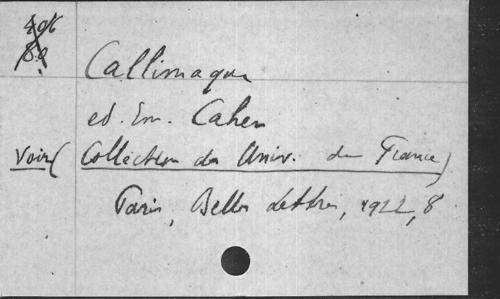 Callimaque
ed. Em. Cahen
Voir (Collection des Univ. de France)
Paris, Belles Lettres, 1922, 8